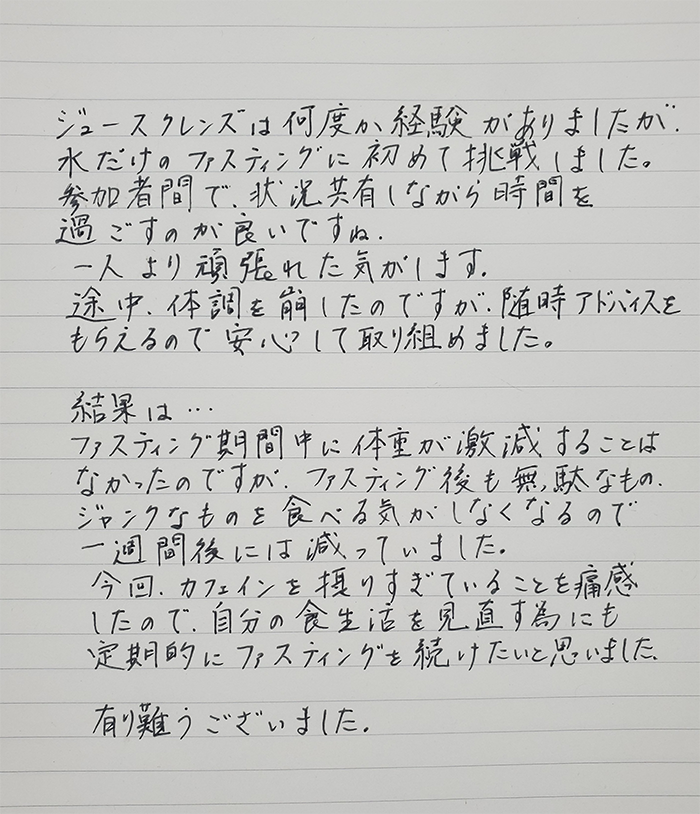 ジュースクレンズは何度か経験がありましたが、
水だけのファスティングに初めて挑戦しました。
参加者間で、状況共有しながら時間を
過ごすのが良いですね、
一人より頑張れた気がします。
途中、体調を崩したのですが、随時アドバイスを
もらえるので安心して取り組めました。
結果は…
ファスティング期間中に体重が激減することは
なかったのですが、ファスティング後も無駄なもの、
ジャンクなものを食べる気がしなくなるので
一週間後には減っていました。
今回、カフェインを摂りすぎていることを痛感
したので、自分の食生活を見直す為にも
定期的にファスティングを続けたいと思いました、
有り難うございました。